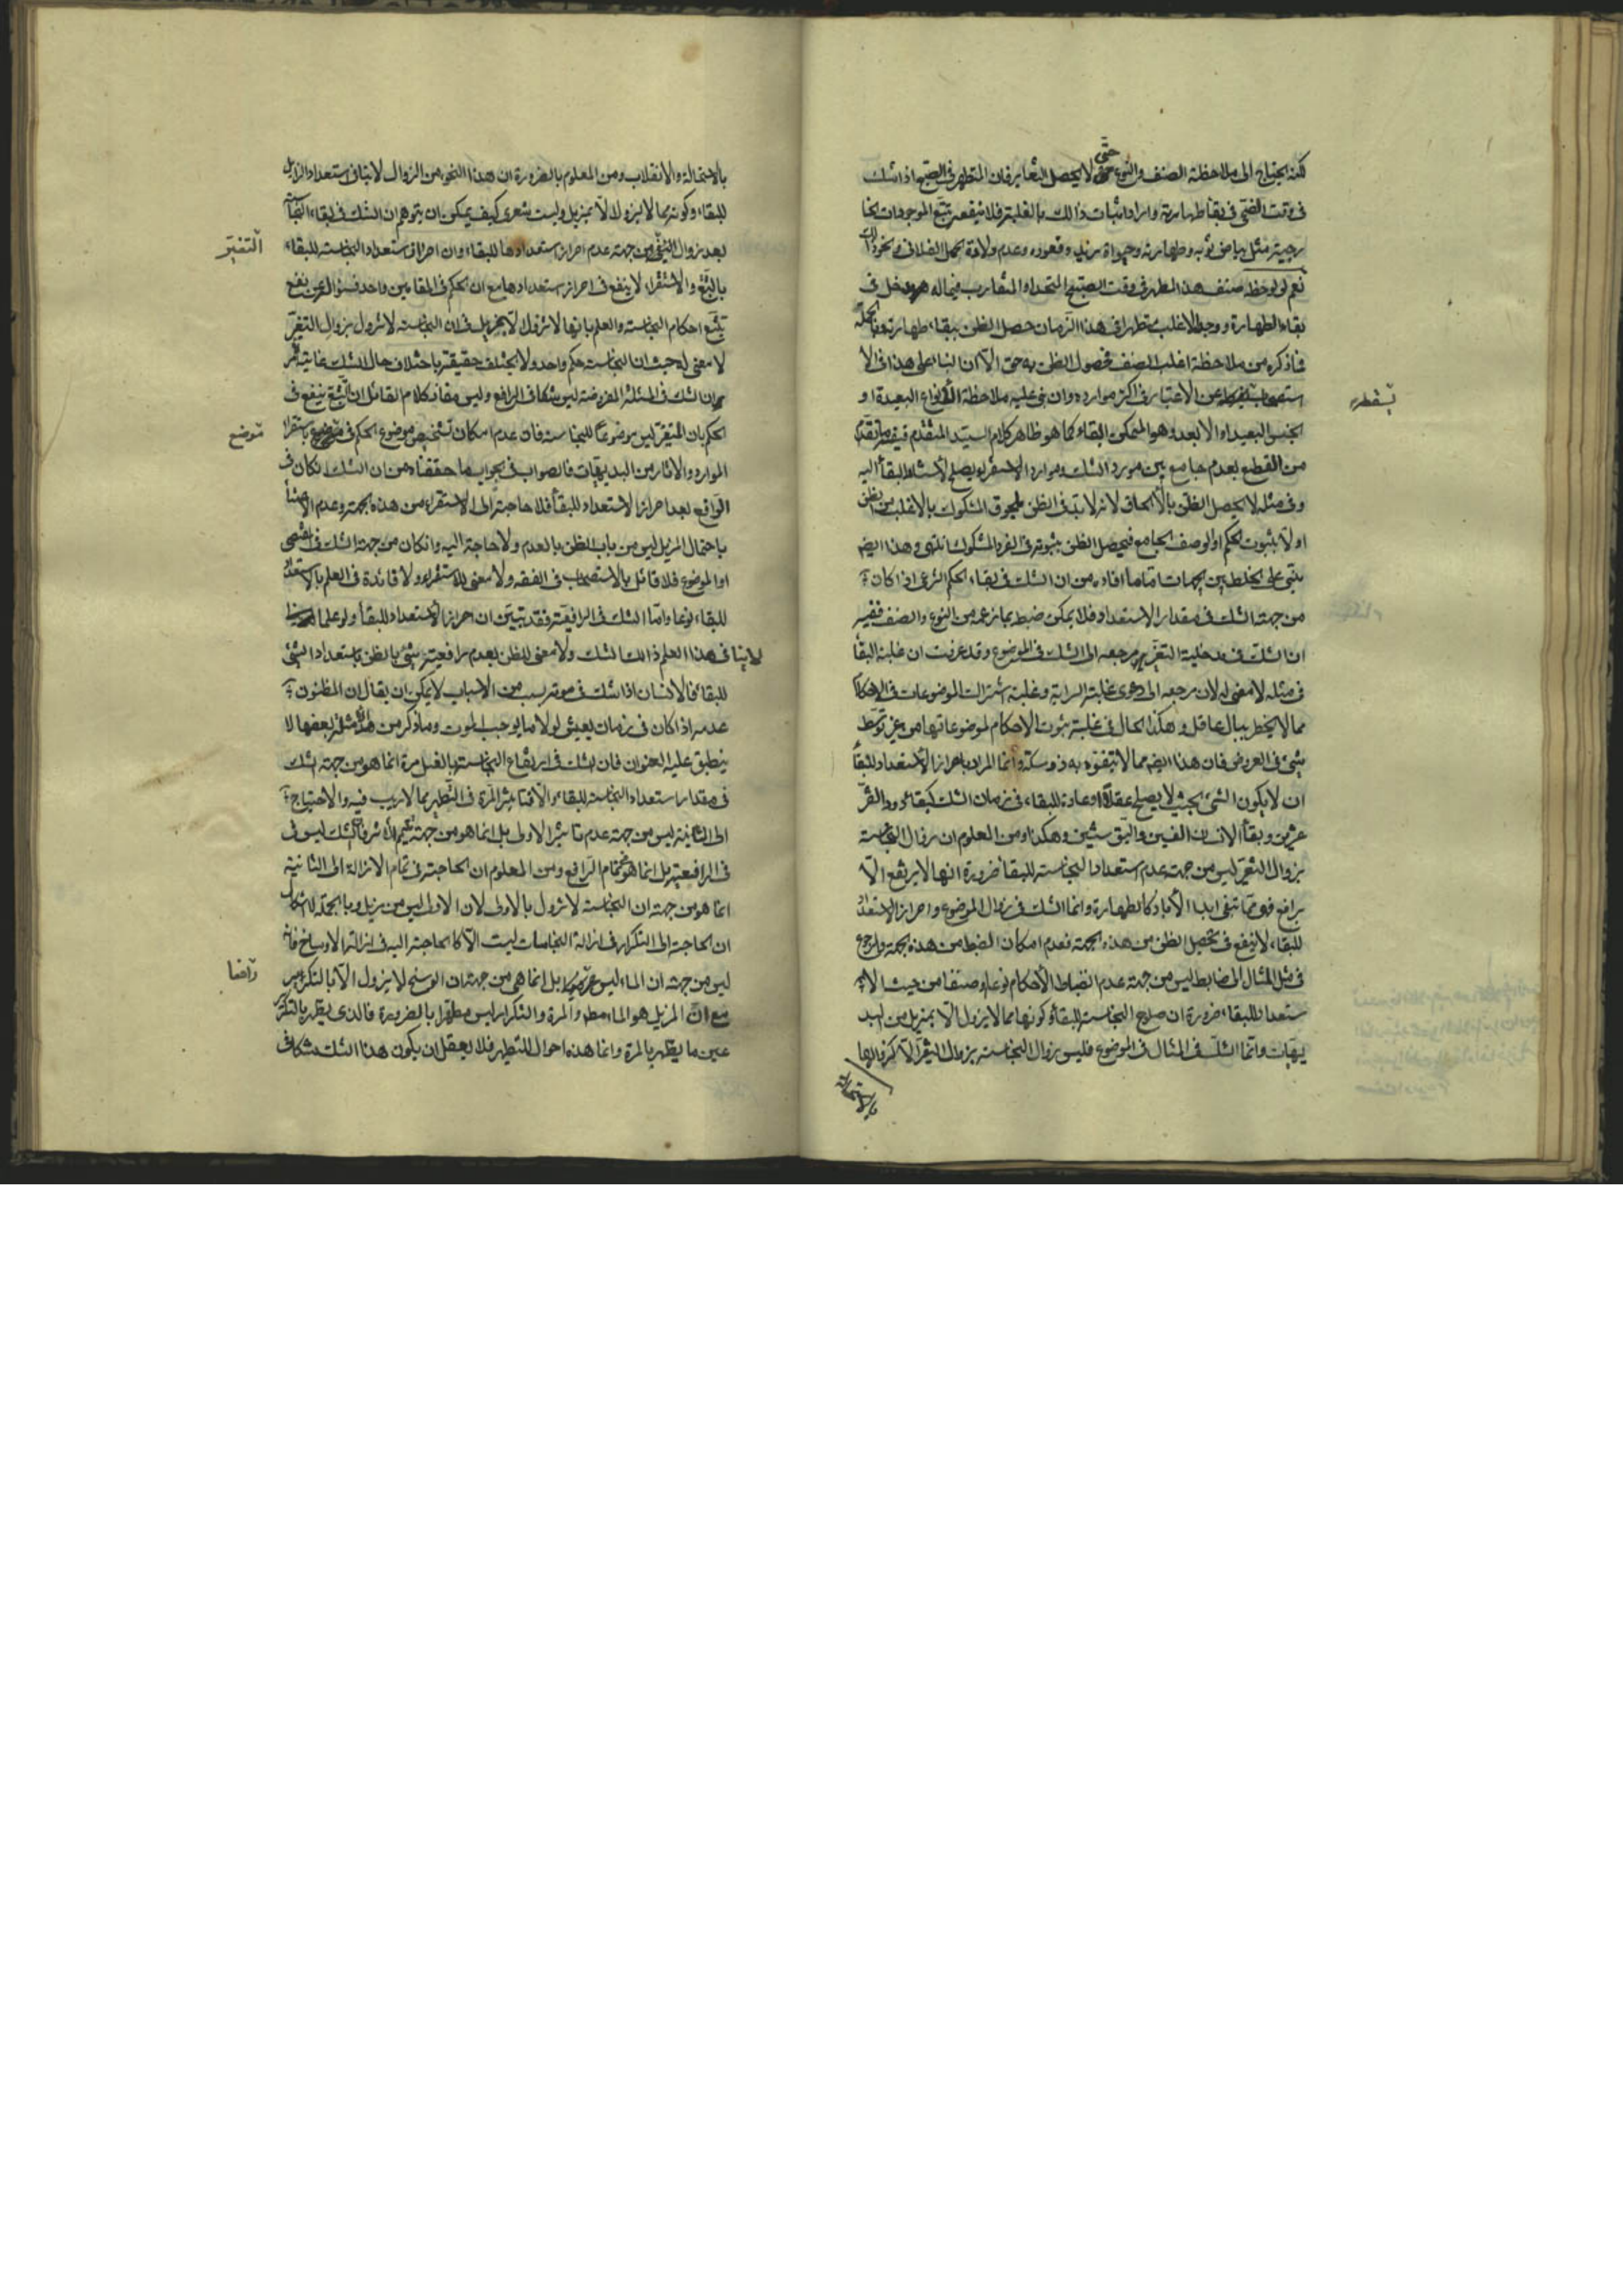 لكنه يحتاج الى ملاحظة الصنف والنوع حتى لا يحصل التغاير فان المتطهر فى الصبح اذا شك
فى وقت الضحى فى بقاء طهارته واراد اثبات ذالك بالغلبة فلا ينفعه تتبع الموجودات الخا
رجية مثل بياض ثوبه وطهارته وحيوة زيد وقعوده وعدم ولادة الحمل الفلانى ونحو ذالك
نعم لو لوحظ صنف هذا المطهر فى وقت الصبح المتحد او المتقارب فيما له مدخل فى
بقاء الطهارة ووجد الاغلب متطهرا فى هذا الزمان حصل الظن ببقاء طهارته وبالجملة
فما ذكره من ملاحظة اغلب الصنف فحصول الظن به حق الا ان البناء على هذا فى الا
ستصحاب يسقطه عن الاعتبار فى اكثر موارده وان بنى عليه ملاحظة الانواع البعيدة او
الجنس البعيد او الابعد وهو الممكن البقاء كما هو ظاهر كلام السيد المتقدم ففيه ما تقدم
من القطع بعدم جامع بين مورد الشك وموارد الاستقراء يصلح لاستناد البقاء اليه
وفى مثله لا يحصل الظن بالالحاق لانه لا بد فى الظن بلحوق المشكوك بالاغلب من الظن
اولا بثبوت الحكم او الوصف الجامع فيحصل الظن بثبوته فى الفرد المشكوك انتهى وهذا ايضا
مبنى على الخلط بين الجهات امّا ما افاده من ان الشك فى بقاء الحكم الشرعى اذا كان
من جهة الشك فى مقدار الاستعداد فلا يمكن ضبطه بما زعمه من النوع والصنف ففيه
ان الشك فى مدخلية التغير مرجعه الى الشك فى الموضوع وقد عرفت ان غلبة البقاء
فى مثله لا معنى له لان مرجعه الى دعوى غلبة السراية وغلبة اشتراك الموضوعات فى الاحكام
مما لا يخطر ببال عاقل وهكذا الحال فى غلبة ثبوت الاحكام لموضوعاتها من غير توسّط
شيئ فى العروض فان هذا ايضا مما لا يتفوّه به ذو مسكة وانما المراد باحراز الاستعداد للبقاء
ان لا يكون الشئ بحيث لا يصلح عقلا او عادة للبقاء فى زمان الشك كبقاء دود القزّ
عشرين وبقاء الانسان الفين والبق سنتين وهكذا ومن المعلوم ان زوال النجاسة
بزوال التغير ليس من جهة عدم استعداد النجاسة للبقاء ضرورة انها لا يرتفع الّا
برافع فهو مما تبقى ابد الاباد كالطهارة وانما الشك فى زوال الموضوع واحراز الاستعداد
للبقاء لا ينفع فى تحصيل الظن من هذه الجهة فعدم امكان الضبط من هذه الجهة والرجوع
فى مثل المثال الى ضابط ليس من جهة عدم انضباط الاحكام نوعا وصنفا من حيث الا
ستعداد للبقاء ضرورة ان صلوح النجاسة للبقاء وكونها مما لا يزول الا بمزيل من البد
يهيات وانما الشك فى المثال فى الموضوع فليس زوال النجاسة بزوال التغير الا كزوالها
بالاستحالة
يسقطه
بالاستحالة والانقلاب ومن المعلوم بالضرورة ان هذا النحو من الزوال لا ينافى استعداد الزايل
للبقاء وكونه مما لا يزول الا بمزيل وليت شعرى كيف يمكن ان يتوهم ان الشك فى بقاء النجاسة
بعد زوال التغير من جهة عدم احراز استعدادها للبقاء وان احراز استعداد النجاسة للبقاء
بالتتبع والاستقراء لا ينفع فى احراز استعدادها مع ان الحكم فى المقامين واحد فسؤال عن نفع
تتبع احكام النجاسة والعلم بانها لا تزول الا بمزيل فى ان النجاسة لا تزول بزوال التغير
لا معنى له حيث ان النجاسة حكم واحد ولا يختلف حقيقته باختلاف حال الشك غاية الامر
ان الشك فى المسئلة المفروضة ليس شكا فى الرافع وليس مفاد كلام القائل ان التتبع ينفع فى
الحكم بان المتغير ليس موضوعا للنجاسة فان عدم امكان تشخيص موضوع الحكم فى موضع باستقراء
الموارد والاثار من البديهيات فالصواب فى الجواب ما حققناه من ان الشك ان كان فى
الرافع بعد احراز الاستعداد للبقاء فلا حاجة الى الاستقراء من هذه الجهة وعدم الاعتناء
باحتمال المزيل ليس من باب الظن بالعدم ولا حاجة اليه وان كان من جهة الشك فى المقتضى
او الموضوع فلا قائل بالاستصحاب فى الفقه ولا معنى للاستقراء ولا فائدة فى العلم بالاستعداد
للبقاء نوعا وامّا الشك فى الرافعية فقد تبيّن ان احراز الاستعداد للبقاء ولو علما
لا ينافى هذا العلم ذالك الشك ولا معنى للظن بعدم رافعية شيئ بالظن باستعداد الشئ
للبقاء فالانسان اذا شك فى موته بسبب من الاسباب لا يمكن ان يقال ان المظنون
عدمه اذا كان فى زمان يعيش لولا ما يوجب الموت وما ذكر من الامثلة بعضها لا
ينطبق عليه العنوان فان الشك فى ارتفاع النجاسة بالغسل مرة انما هو من جهة الشك
فى مقدار استعداد النجاسة للبقاء والا فتاثير المرة فى التطهير مما لا ريب فيه والاحتياج
الى الثانية ليس من جهة عدم تاثير الاولى بل انما هو من جهة تتميم الاثر فالشك ليس فى
فى الرافعية بل انما هو فى تمام الرافع ومن المعلوم ان الحاجة فى تمام الازالة الى الثانية
انما هو من جهة ان النجاسة لا تزول بالاولى لان الاولى ليس من يزيل وبالجملة لا اشكال
ان الحاجة الى التكرار فى ازالة النجاسات ليست الا كالحاجة اليه فى ازالة الاوساخ فانه
ليس من جهة ان الماء ليس بل انما هى من جهة ان الوسخ لا يزول الا بالتكرار
مع انّ المزيل هو الماء مطلقا والمرة والتكرار ليس مطهرا بالضرورة فالذى يطهر بالتكرير
عين ما يطهر بالمرة وانما هذه احوال للتطهير فلا يعقل ان يكون هذا الشك شكا فى
التغيّر
موضع
رافعا